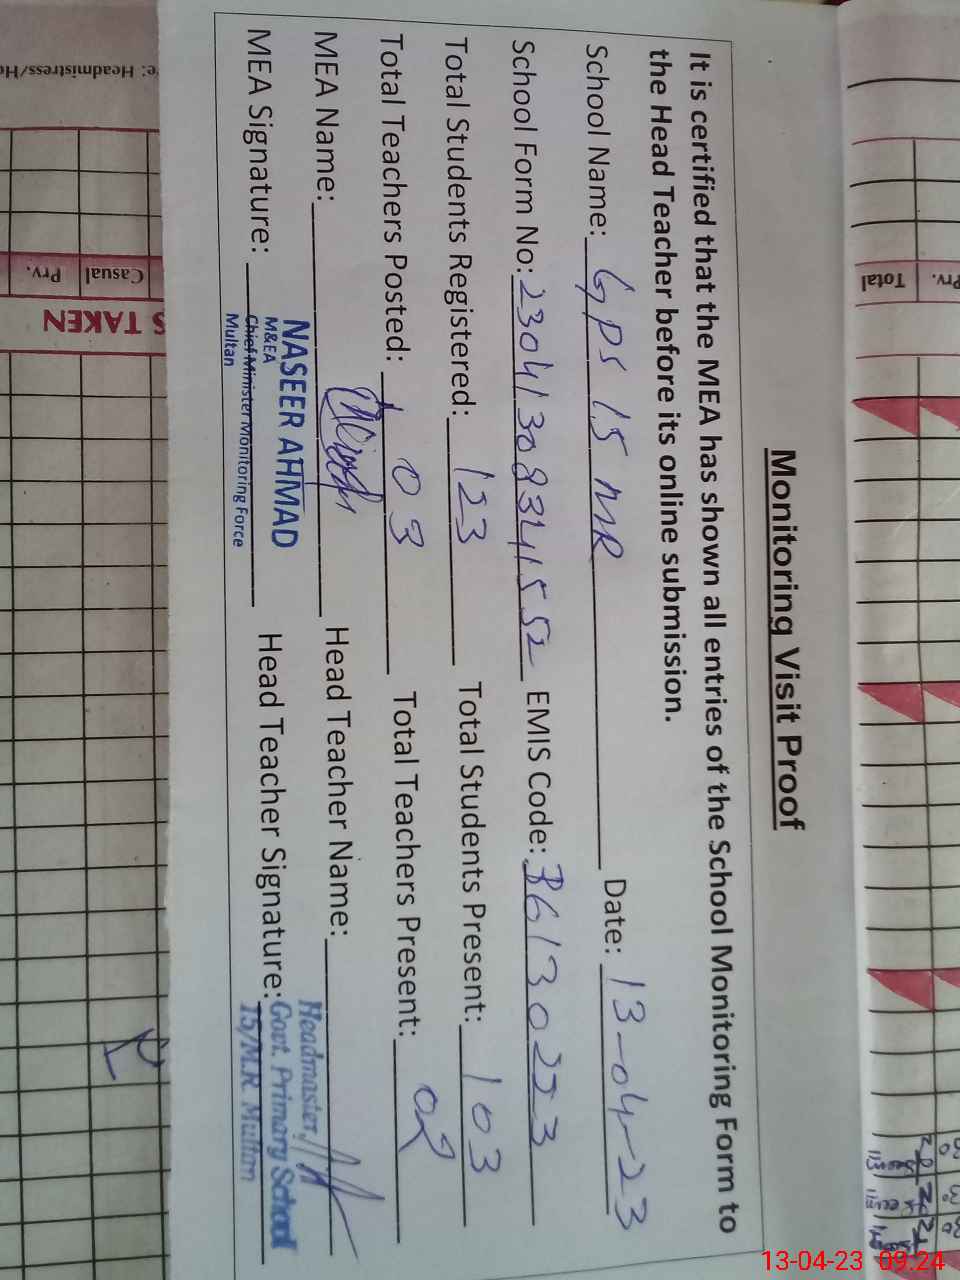 Monitoring Visit Proof
It is certified that the MEA has shown all entries of the School Monitoring Form to
the Head Teacher before its online submission.
School Name: GPS 15 MR Date: 13-04-23
School Form No: EMIS Code: 36130223
Total Students Registered: 123 Total Students Present: 103
Total Teachers Posted: 03 Total Teachers Present: 02
MEA Name: Head Teacher Name:
MEA Signature: Head Teacher Signature:
NASEER AHMAD
M&EA
Chief Minister Monitoring Force
Multan
Headmaster
Govt. Primary School
15/M.R. Multan
e: Headmistress/He
Casual Prv.
S TAKEN
Prv. Total
13-04-23 09:24